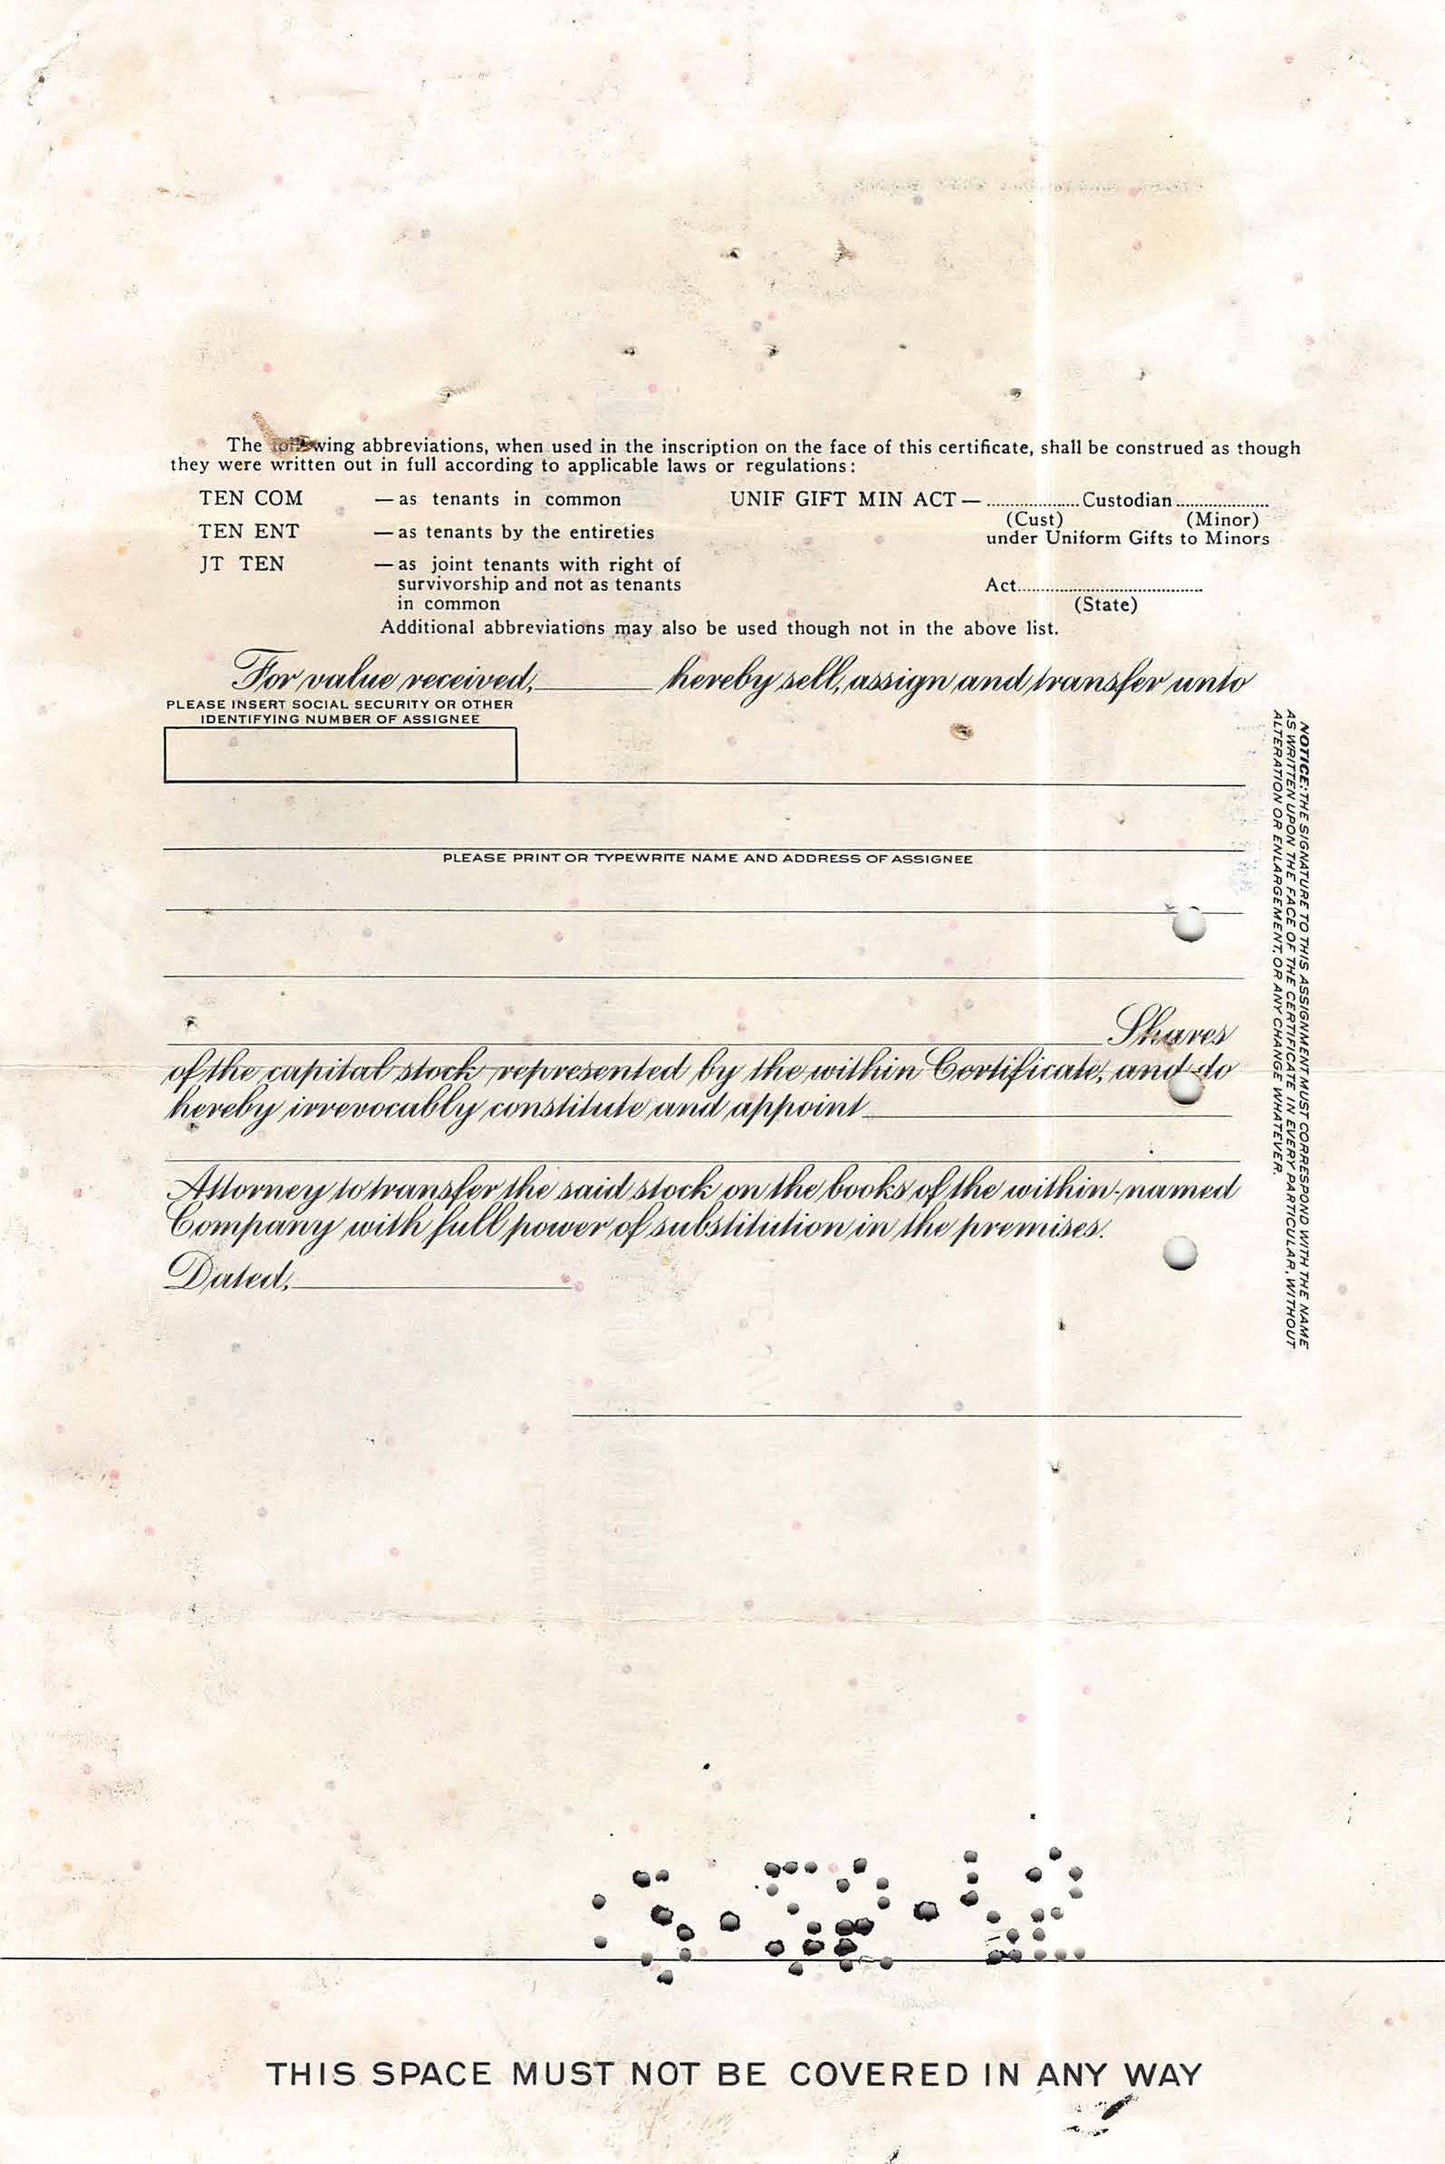 The following abbreviations, when used in the inscription on the face of this certificate, shall be construed as though
they were written out in full according to applicable laws or regulations:
TEN COM — as tenants in common UNIF GIFT MIN ACT — ..................Custodian..................
(Cust) (Minor)
TEN ENT — as tenants by the entireties
under Uniform Gifts to Minors
JT TEN — as joint tenants with right of
survivorship and not as tenants Act....................................
in common (State)
Additional abbreviations may also be used though not in the above list.
For value received, ________ hereby sell, assign and transfer unto
PLEASE INSERT SOCIAL SECURITY OR OTHER
IDENTIFYING NUMBER OF ASSIGNEE
PLEASE PRINT OR TYPEWRITE NAME AND ADDRESS OF ASSIGNEE
Shares
of the capital stock represented by the within Certificate, and do
hereby irrevocably constitute and appoint
Attorney to transfer the said stock on the books of the within-named
Company with full power of substitution in the premises.
Dated,
NOTICE: THE SIGNATURE TO THIS ASSIGNMENT MUST CORRESPOND WITH THE NAME
AS WRITTEN UPON THE FACE OF THE CERTIFICATE IN EVERY PARTICULAR, WITHOUT
ALTERATION OR ENLARGEMENT, OR ANY CHANGE WHATEVER.
THIS SPACE MUST NOT BE COVERED IN ANY WAY